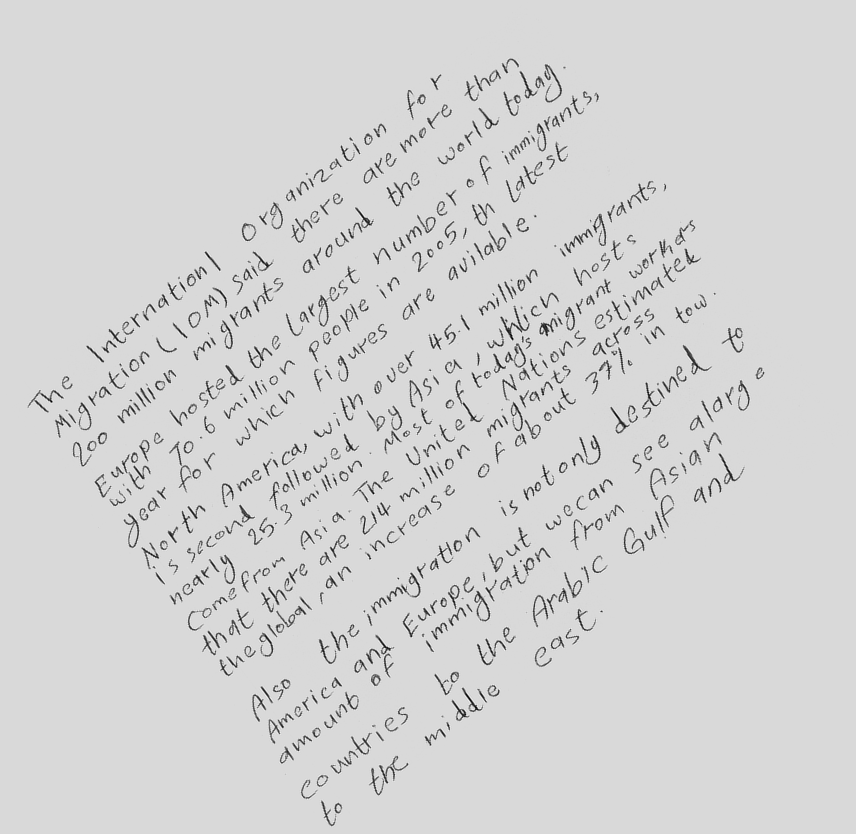 The Internationl Organization for
Migration (IOM) said there are more than
200 million migrants around the world today.
Europe hosted the largest number of immigrants,
with 70.6 million people in 2005, th latest
year for which figures are avilable.
North America, with over 45.1 million immigrants,
is second followed by Asia, which hosts
nearly 25.3 million. Most of today's migrant workers
come from Asia. The United Nations estimated
that there are 214 million migrants across
the global, an increase of about 37% in tow.
Also the immigration is not only destined to
America and Europe, but we can see a large
amount of immigration from Asian
countries to the Arabic Gulf and
to the middle east.